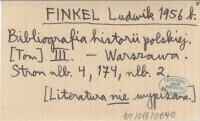 FINKEL Ludwik 1956 b.
Bibliografia historii polskiej.
[Tom] III. – Warszawa.
Stron nlb. 4, 174, nlb. 2.
[Literatura nie wypisana.]